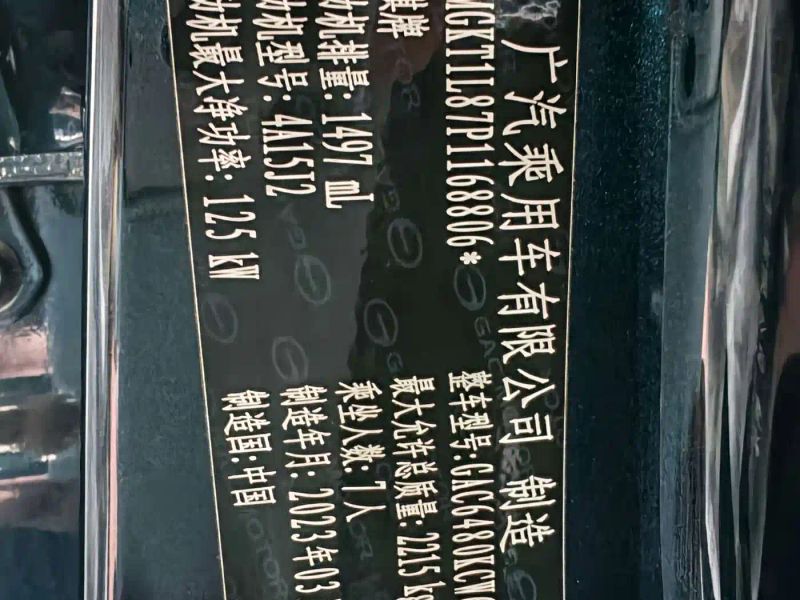 广汽乘用车有限公司 制造
MGKT1L87P1168806*
整车型号:GAC6480KCW
棋牌
最大允许总质量: 2215 kg
动机排量: 1497 mL
乘坐人数: 7人
动机型号: 4A15J2
制造年月: 2023年03
动机最大净功率: 125 kW
制造国:中国